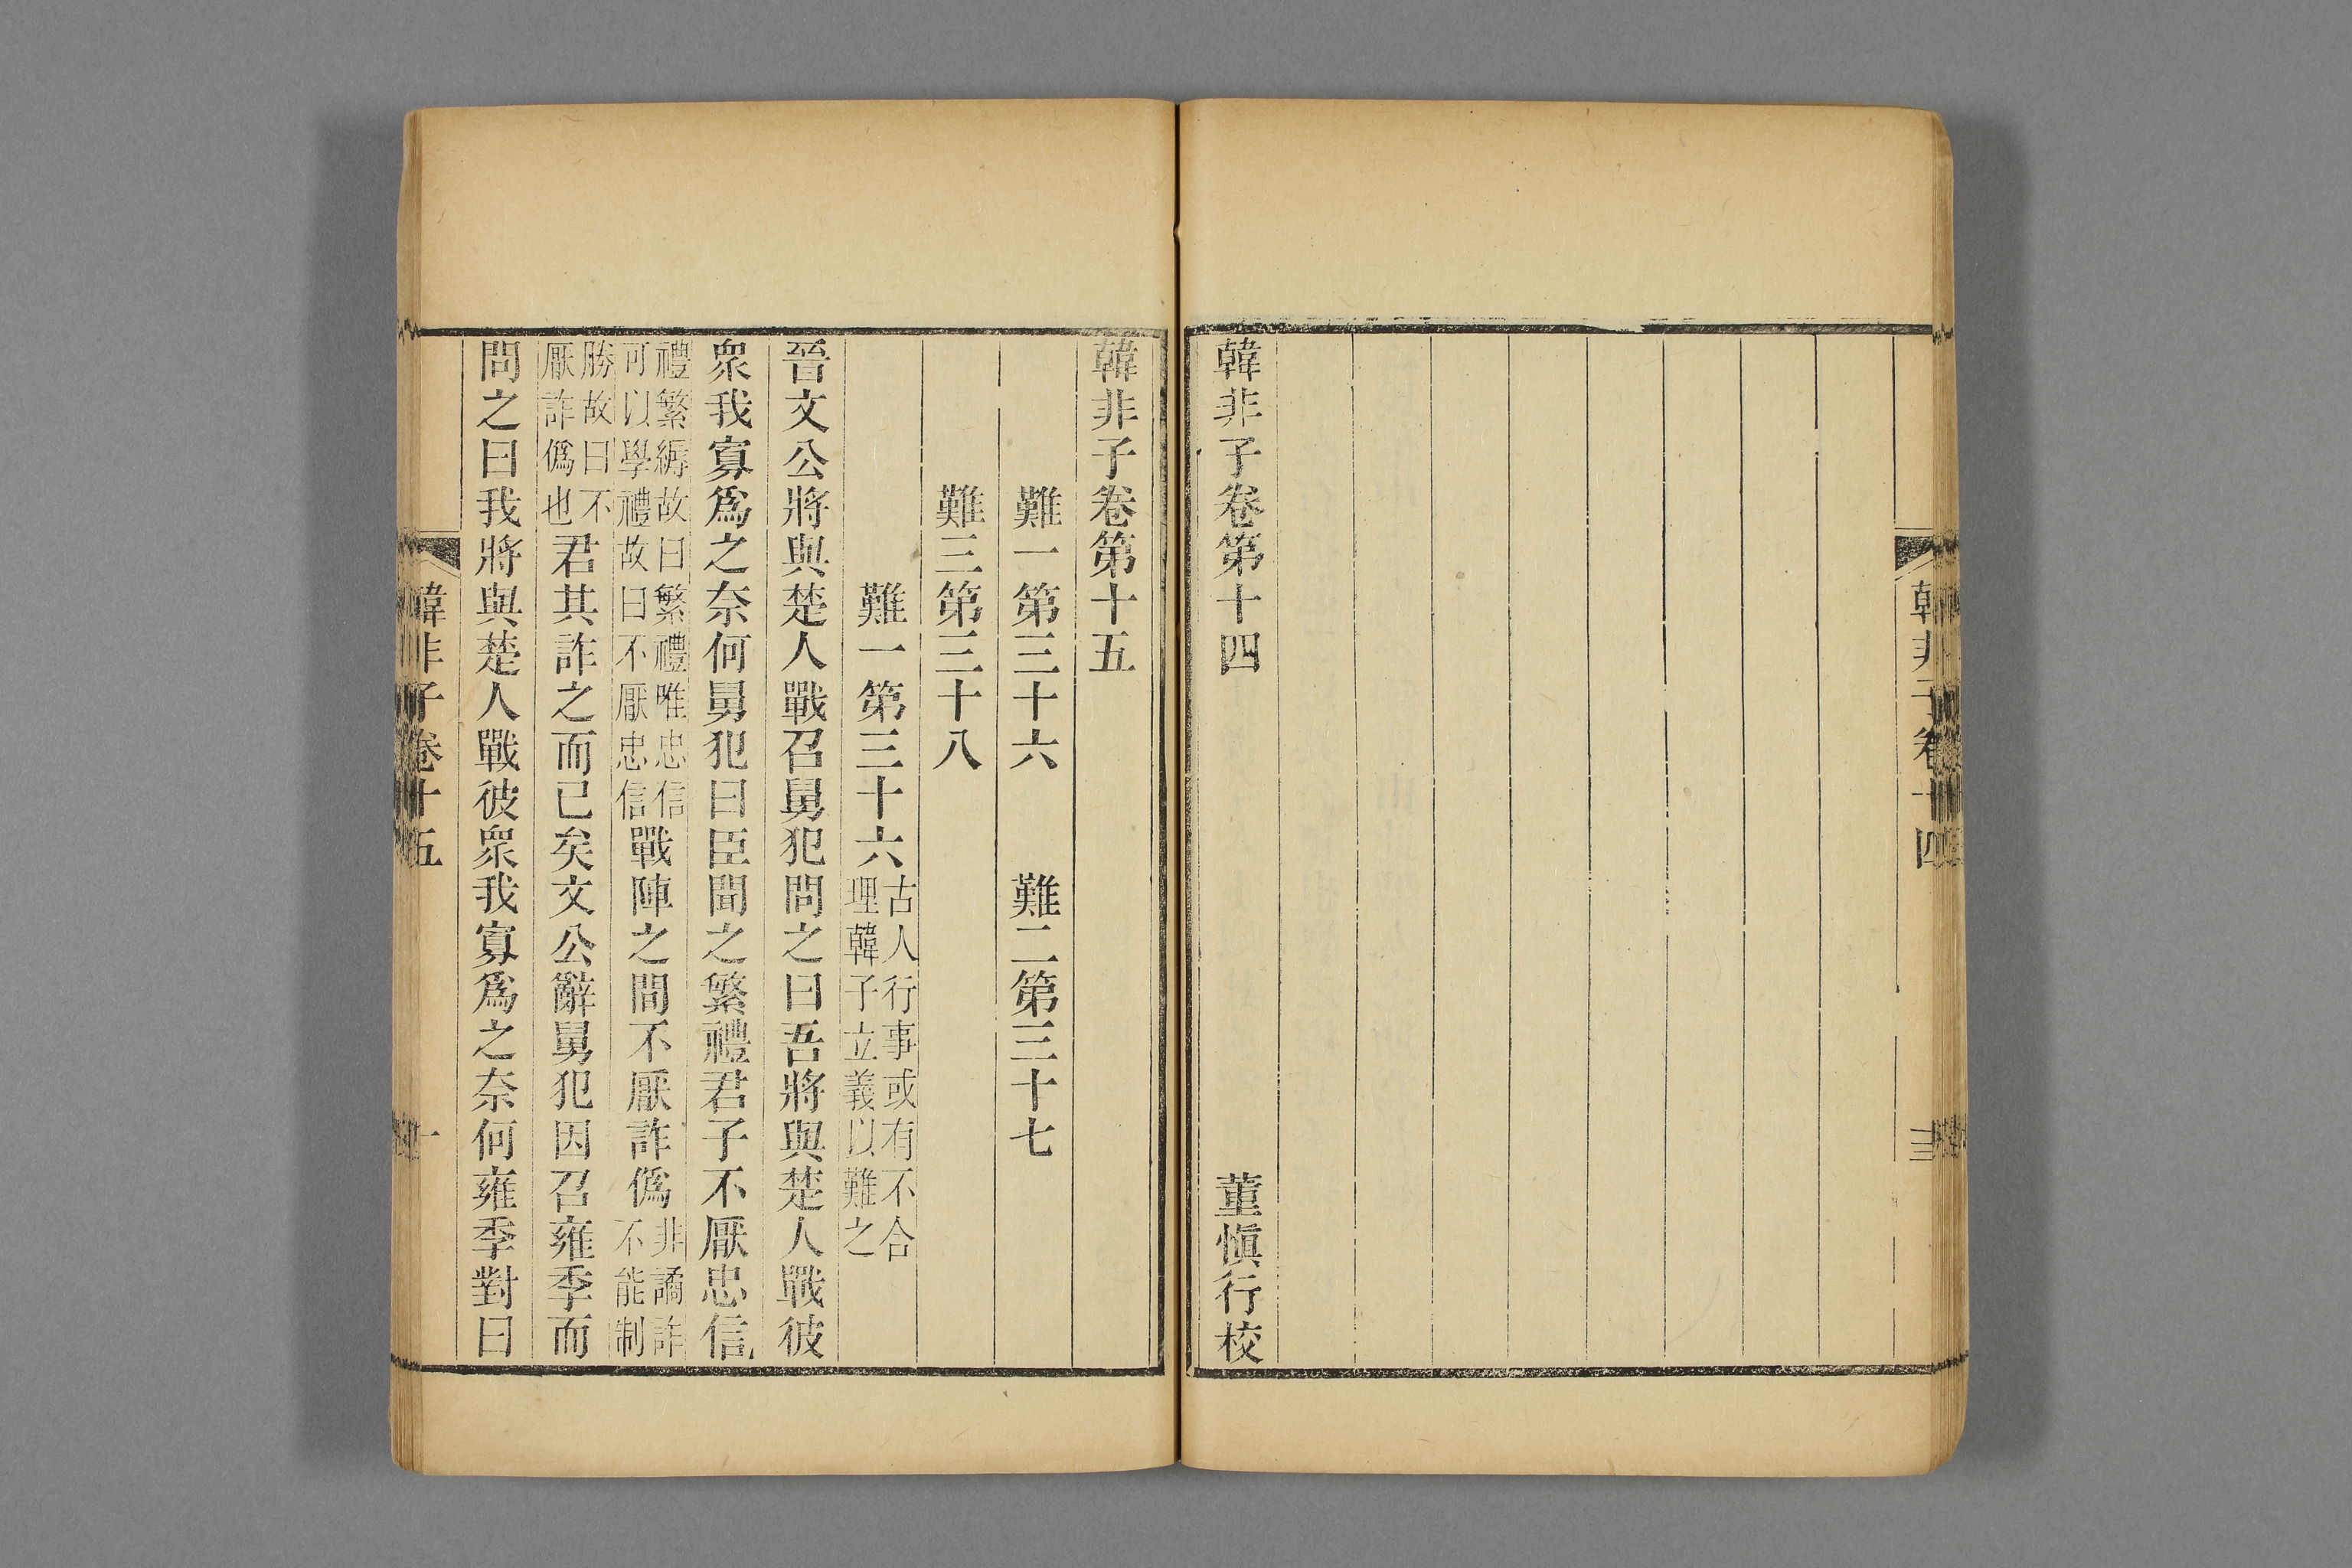 韓非子卷十四
韓非子卷第十四 董慎行校
韓非子卷第十五
難一第三十六 難二第三十七
難三第三十八
難一第三十六古人行事或有不合理韓子立義以難之
晉文公將與楚人戰召舅犯問之曰吾將與楚人戰彼
衆我寡爲之奈何舅犯曰臣聞之繁禮君子不厭忠信
禮繁縟故曰繁禮唯忠信可以學禮故曰不厭忠信戰陣之間不厭詐僞非譎詐不能制
勝故曰不厭詐僞也君其詐之而已矣文公辭舅犯因召雍季而
問之曰我將與楚人戰彼衆我寡爲之奈何雍季對曰
韓非子卷十五 一